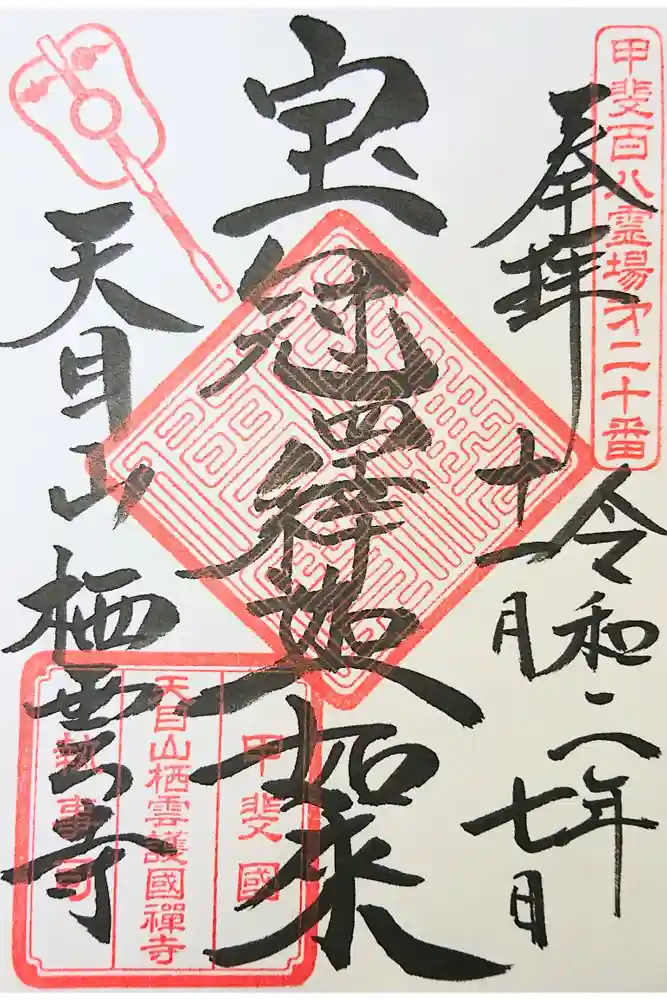 甲斐百八霊場才二十番
奉拝
令和二年
十一月七日
宝冠釋迦如来
天目山栖雲寺
甲斐國
天目山栖雲護國禅寺
執事司